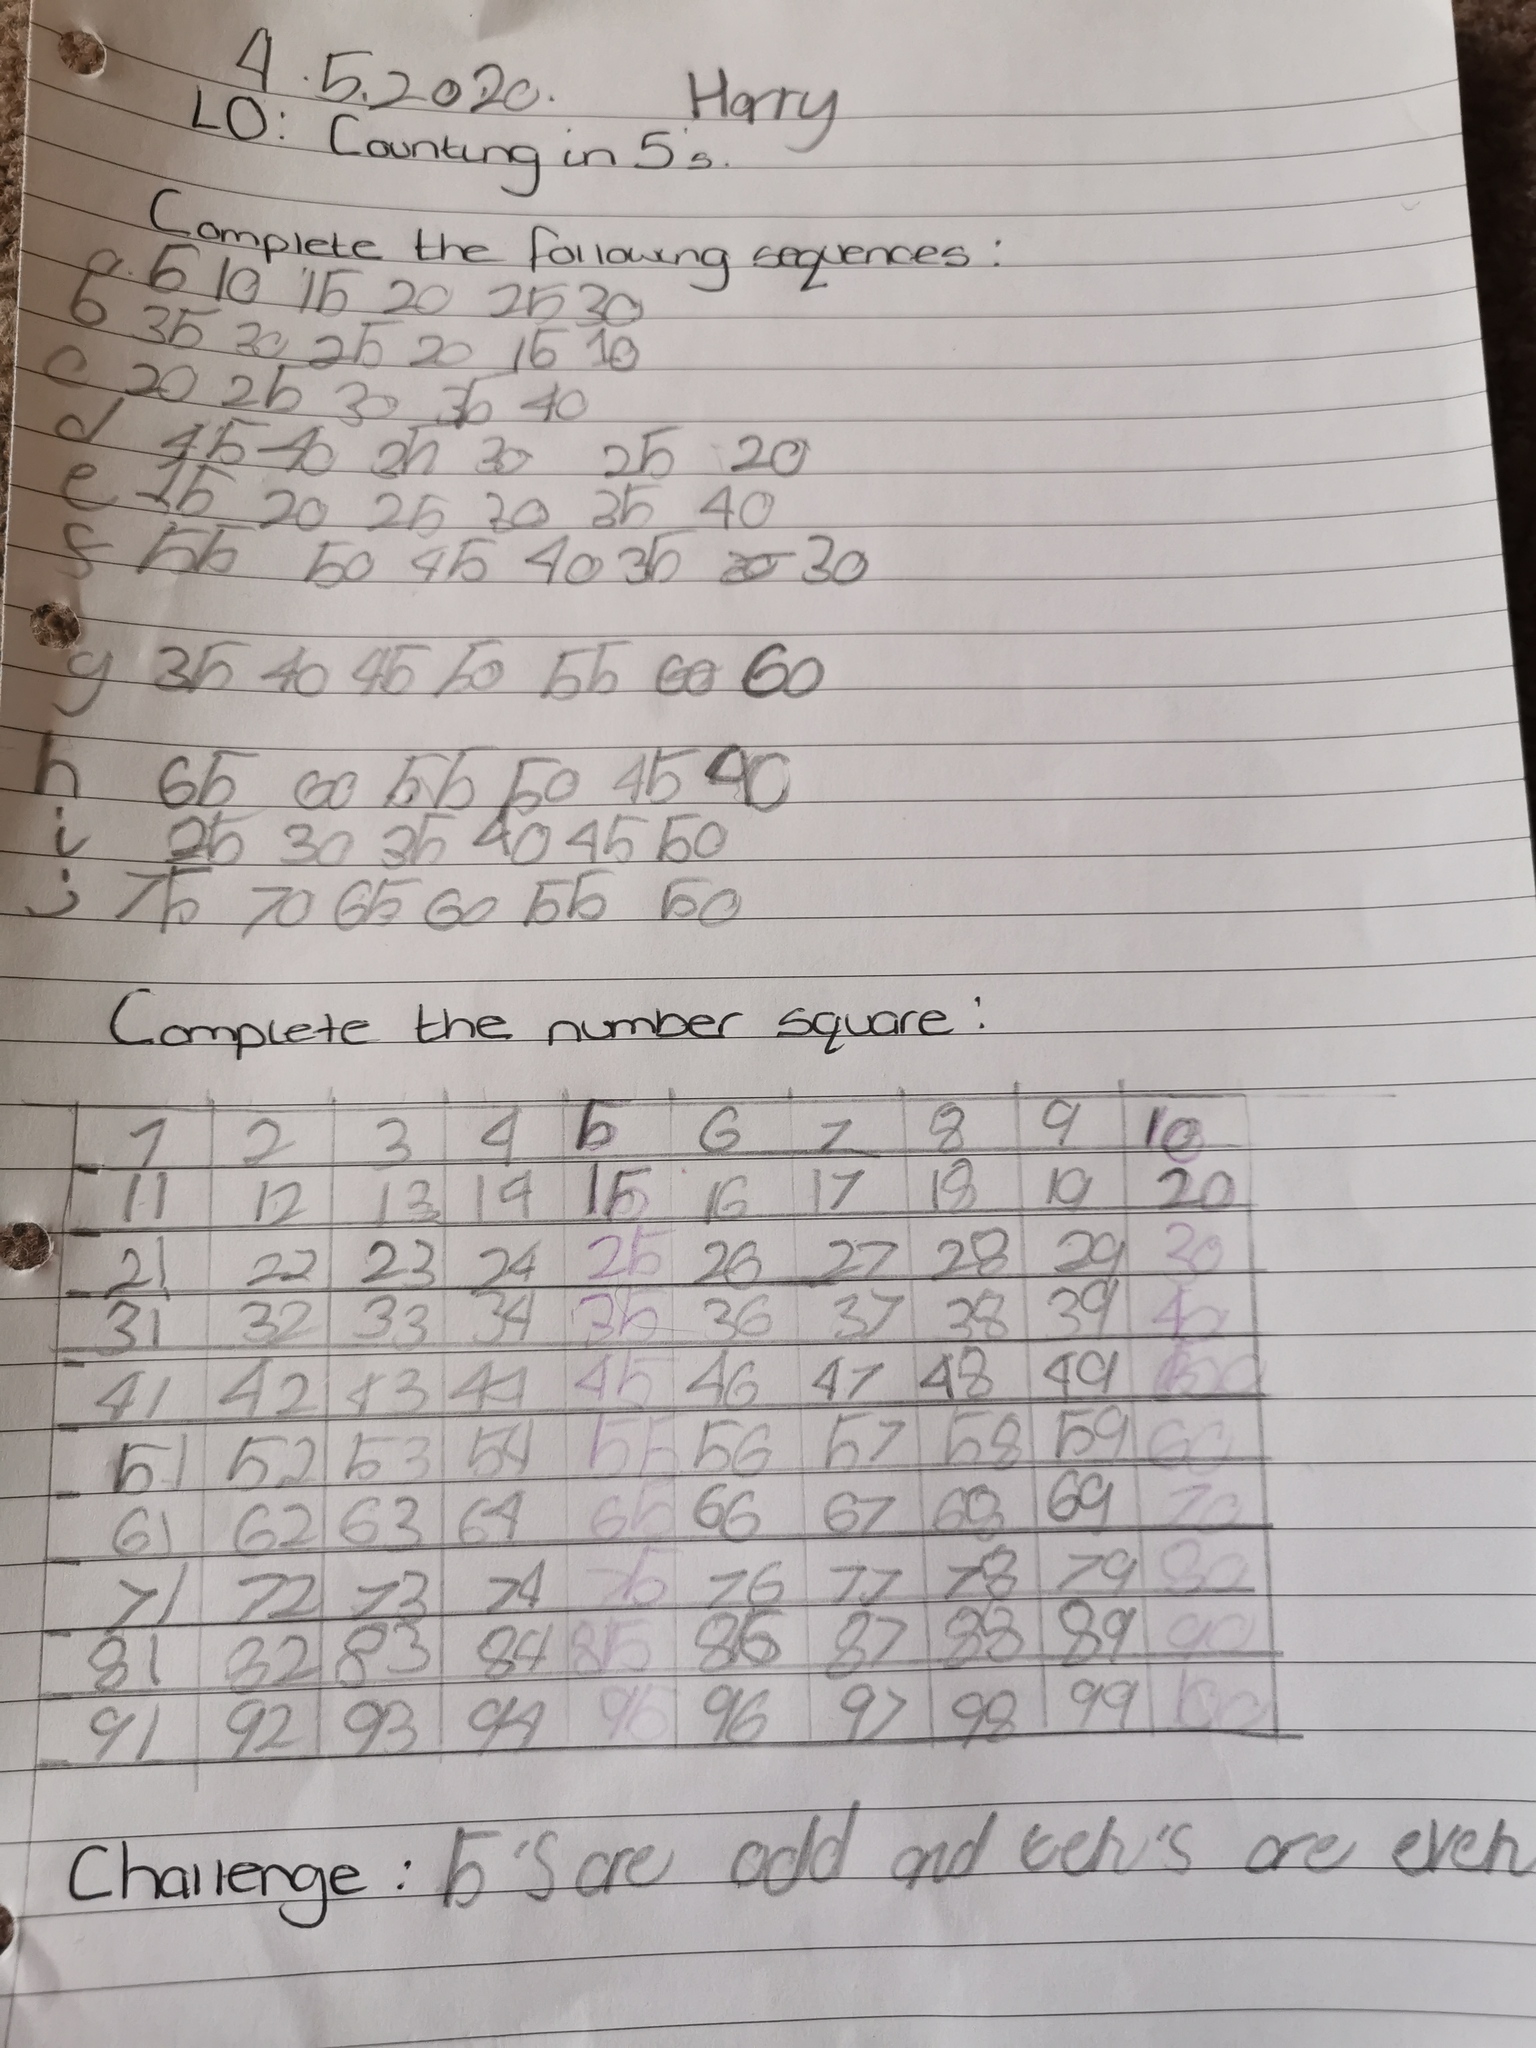 4.5.2020. Harry
LO: Counting in 5's.
Complete the following sequences:
a. 5 10 15 20 25 30
b 35 30 25 20 15 10
c 20 25 30 35 40
d 45 40 35 30 25 20
e 15 20 25 30 35 40
f 55 50 45 40 35 30
g 35 40 45 50 55 60 60
h 65 60 55 50 45 40
i 25 30 35 40 45 50
j 75 70 65 60 55 50
Complete the number square:
1 2 3 4 5 6 7 8 9 10
11 12 13 14 15 16 17 18 19 20
21 22 23 24 25 26 27 28 29 30
31 32 33 34 35 36 37 38 39 40
41 42 43 44 45 46 47 48 49 50
51 52 53 54 55 56 57 58 59 60
61 62 63 64 65 66 67 68 69 70
71 72 73 74 75 76 77 78 79 80
81 82 83 84 85 86 87 88 89 90
91 92 93 94 95 96 97 98 99 100
Challenge: 5's are odd and ten's are even